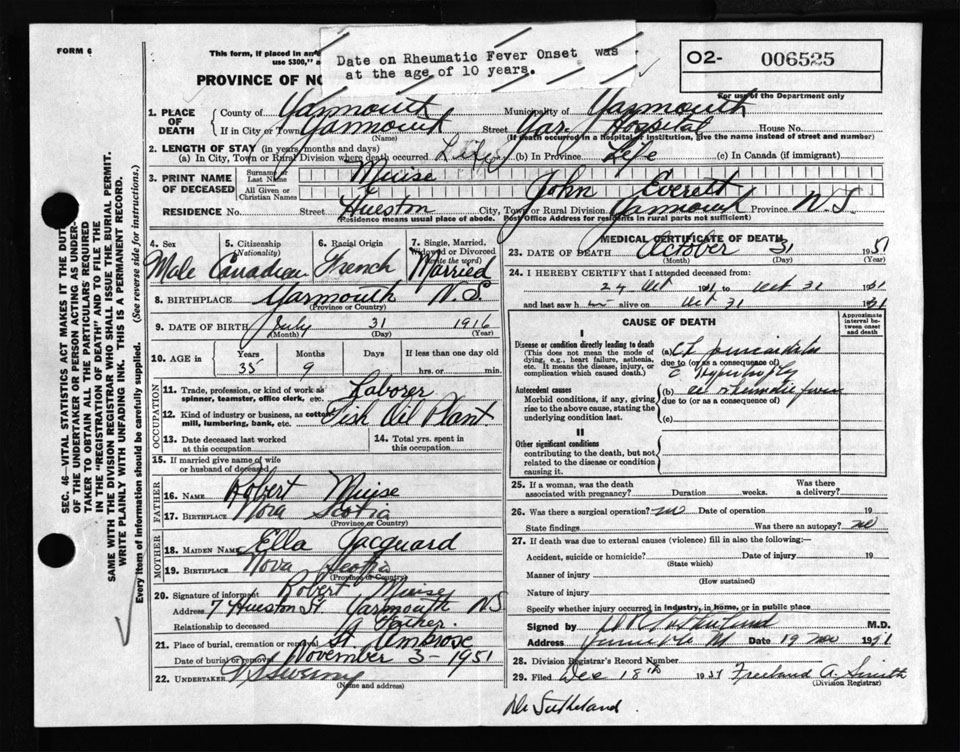 FORM 6
This form, if placed in an
use $300," a
Date on Rheumatic Fever Onset was
at the age of 10 years.
O2- 006525
For use of the Department only
PROVINCE OF NO
1. PLACE OF DEATH
County of Yarmouth Municipality of Yarmouth
If in City or Town Yarmouth Street Yar. Hospital House No.
(Name) (If death occurred in a Hospital or Institution, give the name instead of street and number)
2. LENGTH OF STAY (in years, months and days)
(a) In City, Town or Rural Division where death occurred Life (b) In Province Life (c) In Canada (if immigrant)
3. PRINT NAME OF DECEASED
Surname or Last Name Muise
All Given or Christian Names John Everett
RESIDENCE No. Street Hueston City, Town or Rural Division Yarmouth Province N.S.
(Residence means usual place of abode. Post Office Address for residents in rural parts not sufficient)
4. Sex 5. Citizenship (Nationality) 6. Racial Origin 7. Single, Married, Widowed or Divorced (Write the word)
Male Canadian French Married
8. BIRTHPLACE Yarmouth N.S.
(Province or Country)
9. DATE OF BIRTH July 31 1916
(Month) (Day) (Year)
10. AGE in Years Months Days If less than one day old
35 9 hrs. or min.
OCCUPATION
11. Trade, profession, or kind of work as spinner, teamster, office clerk, etc. Laborer
12. Kind of industry or business, as cotton mill, lumbering, bank, etc. Fish Oil Plant
13. Date deceased last worked at this occupation
14. Total yrs. spent in this occupation
15. If married give name of wife or husband of deceased
FATHER
16. NAME Robert Muise
17. BIRTHPLACE Nova Scotia
(Province or Country)
MOTHER
18. MAIDEN NAME Ella Jacquard
19. BIRTHPLACE Nova Scotia
(Province or Country)
20. Signature of informant Robert Muise
Address 7 Hueston St. Yarmouth NS
Relationship to deceased Father.
21. Place of burial, cremation or removal St. Ambrose
Date of burial or removal November 3-1951
22. UNDERTAKER Sweeny
(Name and address)
MEDICAL CERTIFICATE OF DEATH
23. DATE OF DEATH October 31 1951
(Month) (Day) (Year)
24. I HEREBY CERTIFY that I attended deceased from:
24 Oct 1951 Oct 31 1951
and last saw h alive on Oct 31 1951
CAUSE OF DEATH
Approximate interval between onset and death
I
Disease or condition directly leading to death (a)
(This does not mean the mode of dying, e.g., heart failure, asthenia, etc. It means the disease, injury, or complication which caused death.)
due to (or as a consequence of)
Antecedent causes (b) rheumatic fever
Morbid conditions, if any, giving rise to the above cause, stating the underlying condition last.
due to (or as a consequence of)
(c)
II
Other significant conditions
contributing to the death, but not related to the disease or condition causing it.
25. If a woman, was the death associated with pregnancy? Duration weeks. Was there a delivery?
26. Was there a surgical operation? no Date of operation 19
State findings Was there an autopsy? no
27. If death was due to external causes (violence) fill in also the following:—
Accident, suicide or homicide? Date of injury 19
(State which)
Manner of injury
(How sustained)
Nature of injury
Specify whether injury occurred in industry, in home, or in public place
Signed by Sutherland M.D.
Address Date 19 Nov 1951
28. Division Registrar's Record Number
29. Filed Dec 18th 1951 Freeland A. Smith
(Division Registrar)
Dr Sutherland.
SEC. 46—VITAL STATISTICS ACT MAKES IT THE DUTY
OF THE UNDERTAKER OR PERSON ACTING AS UNDER-
TAKER TO OBTAIN ALL THE PARTICULARS REQUIRED
IN THE "REGISTRATION OF DEATH" AND TO FILE THE
SAME WITH THE DIVISION REGISTRAR WHO SHALL ISSUE THE BURIAL PERMIT.
WRITE PLAINLY WITH UNFADING INK. THIS IS A PERMANENT RECORD.
Every item of information should be carefully supplied. (See reverse side for instructions.)